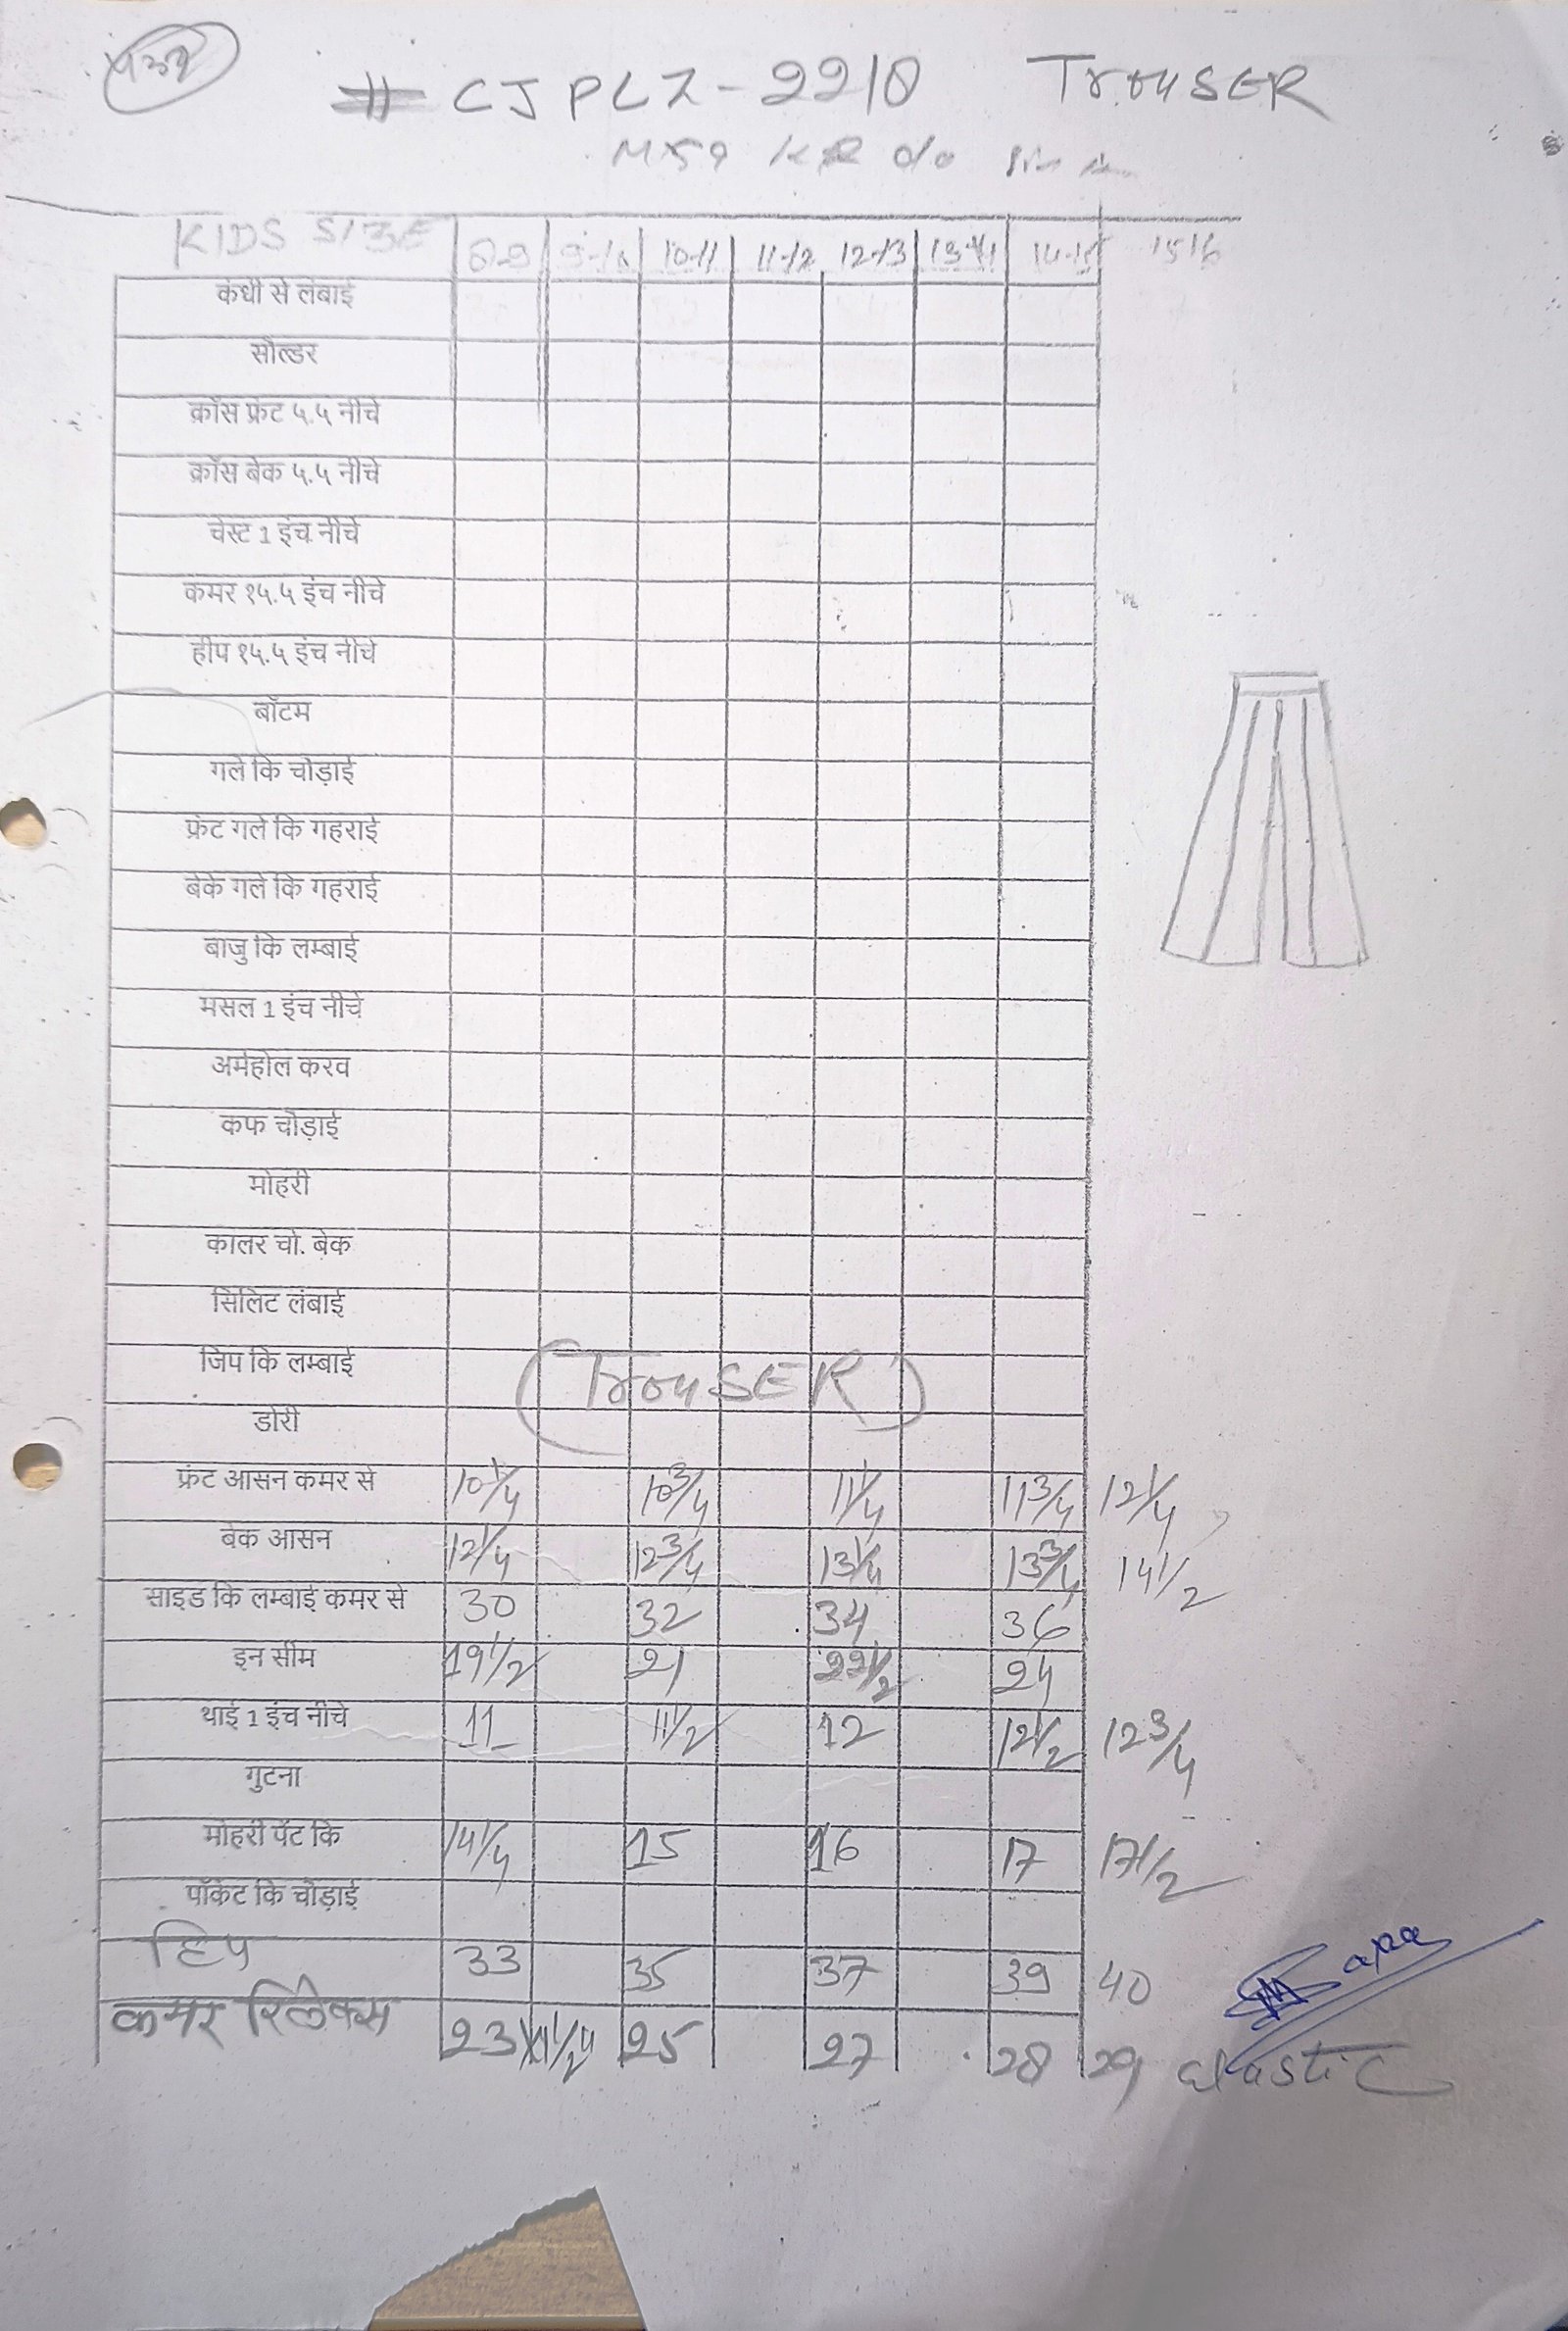 # CJPLZ-2210 TrouSER
KIDS SIZE 8-9 9-10 10-11 11-12 12-13 13-14 14-15 15 16
कंधी से लंबाई
सोल्डर
क्रॉस फ्रंट ५.५ नीचे
क्रॉस बेक ५.५ नीचे
चेस्ट 1 इंच नीचे
कमर १५.५ इंच नीचे
हीप १५.५ इंच नीचे
बॉटम
गले कि चोड़ाई
फ्रंट गले कि गहराई
बेके गले कि गहराई
बाजु कि लम्बाई
मसल 1 इंच नीचे
अर्महोल करव
कफ चोड़ाई
मोहरी
कालर चो. बेक
सिलिट लंबाई
जिप कि लम्बाई
TrouSER
डोरी
फ्रंट आसन कमर से 10 1/4 10 3/4 11 1/4 11 3/4 12 1/4
बेक आसन 12 1/4 12 3/4 13 1/4 13 3/4 14 1/2
साइड कि लम्बाई कमर से 30 32 34 36
इन सीम 19 1/2 21 22 1/2 24
थाई 1 इंच नीचे 11 11 1/2 12 12 1/2 12 3/4
गुटना
मोहरी पेंट कि 14 1/4 15 16 17 17 1/2
पॉकेट कि चोड़ाई
हिप 33 35 37 39 40
कमर रिलेक्स 23 x 1 1/2" 25 27 28 29 elastic